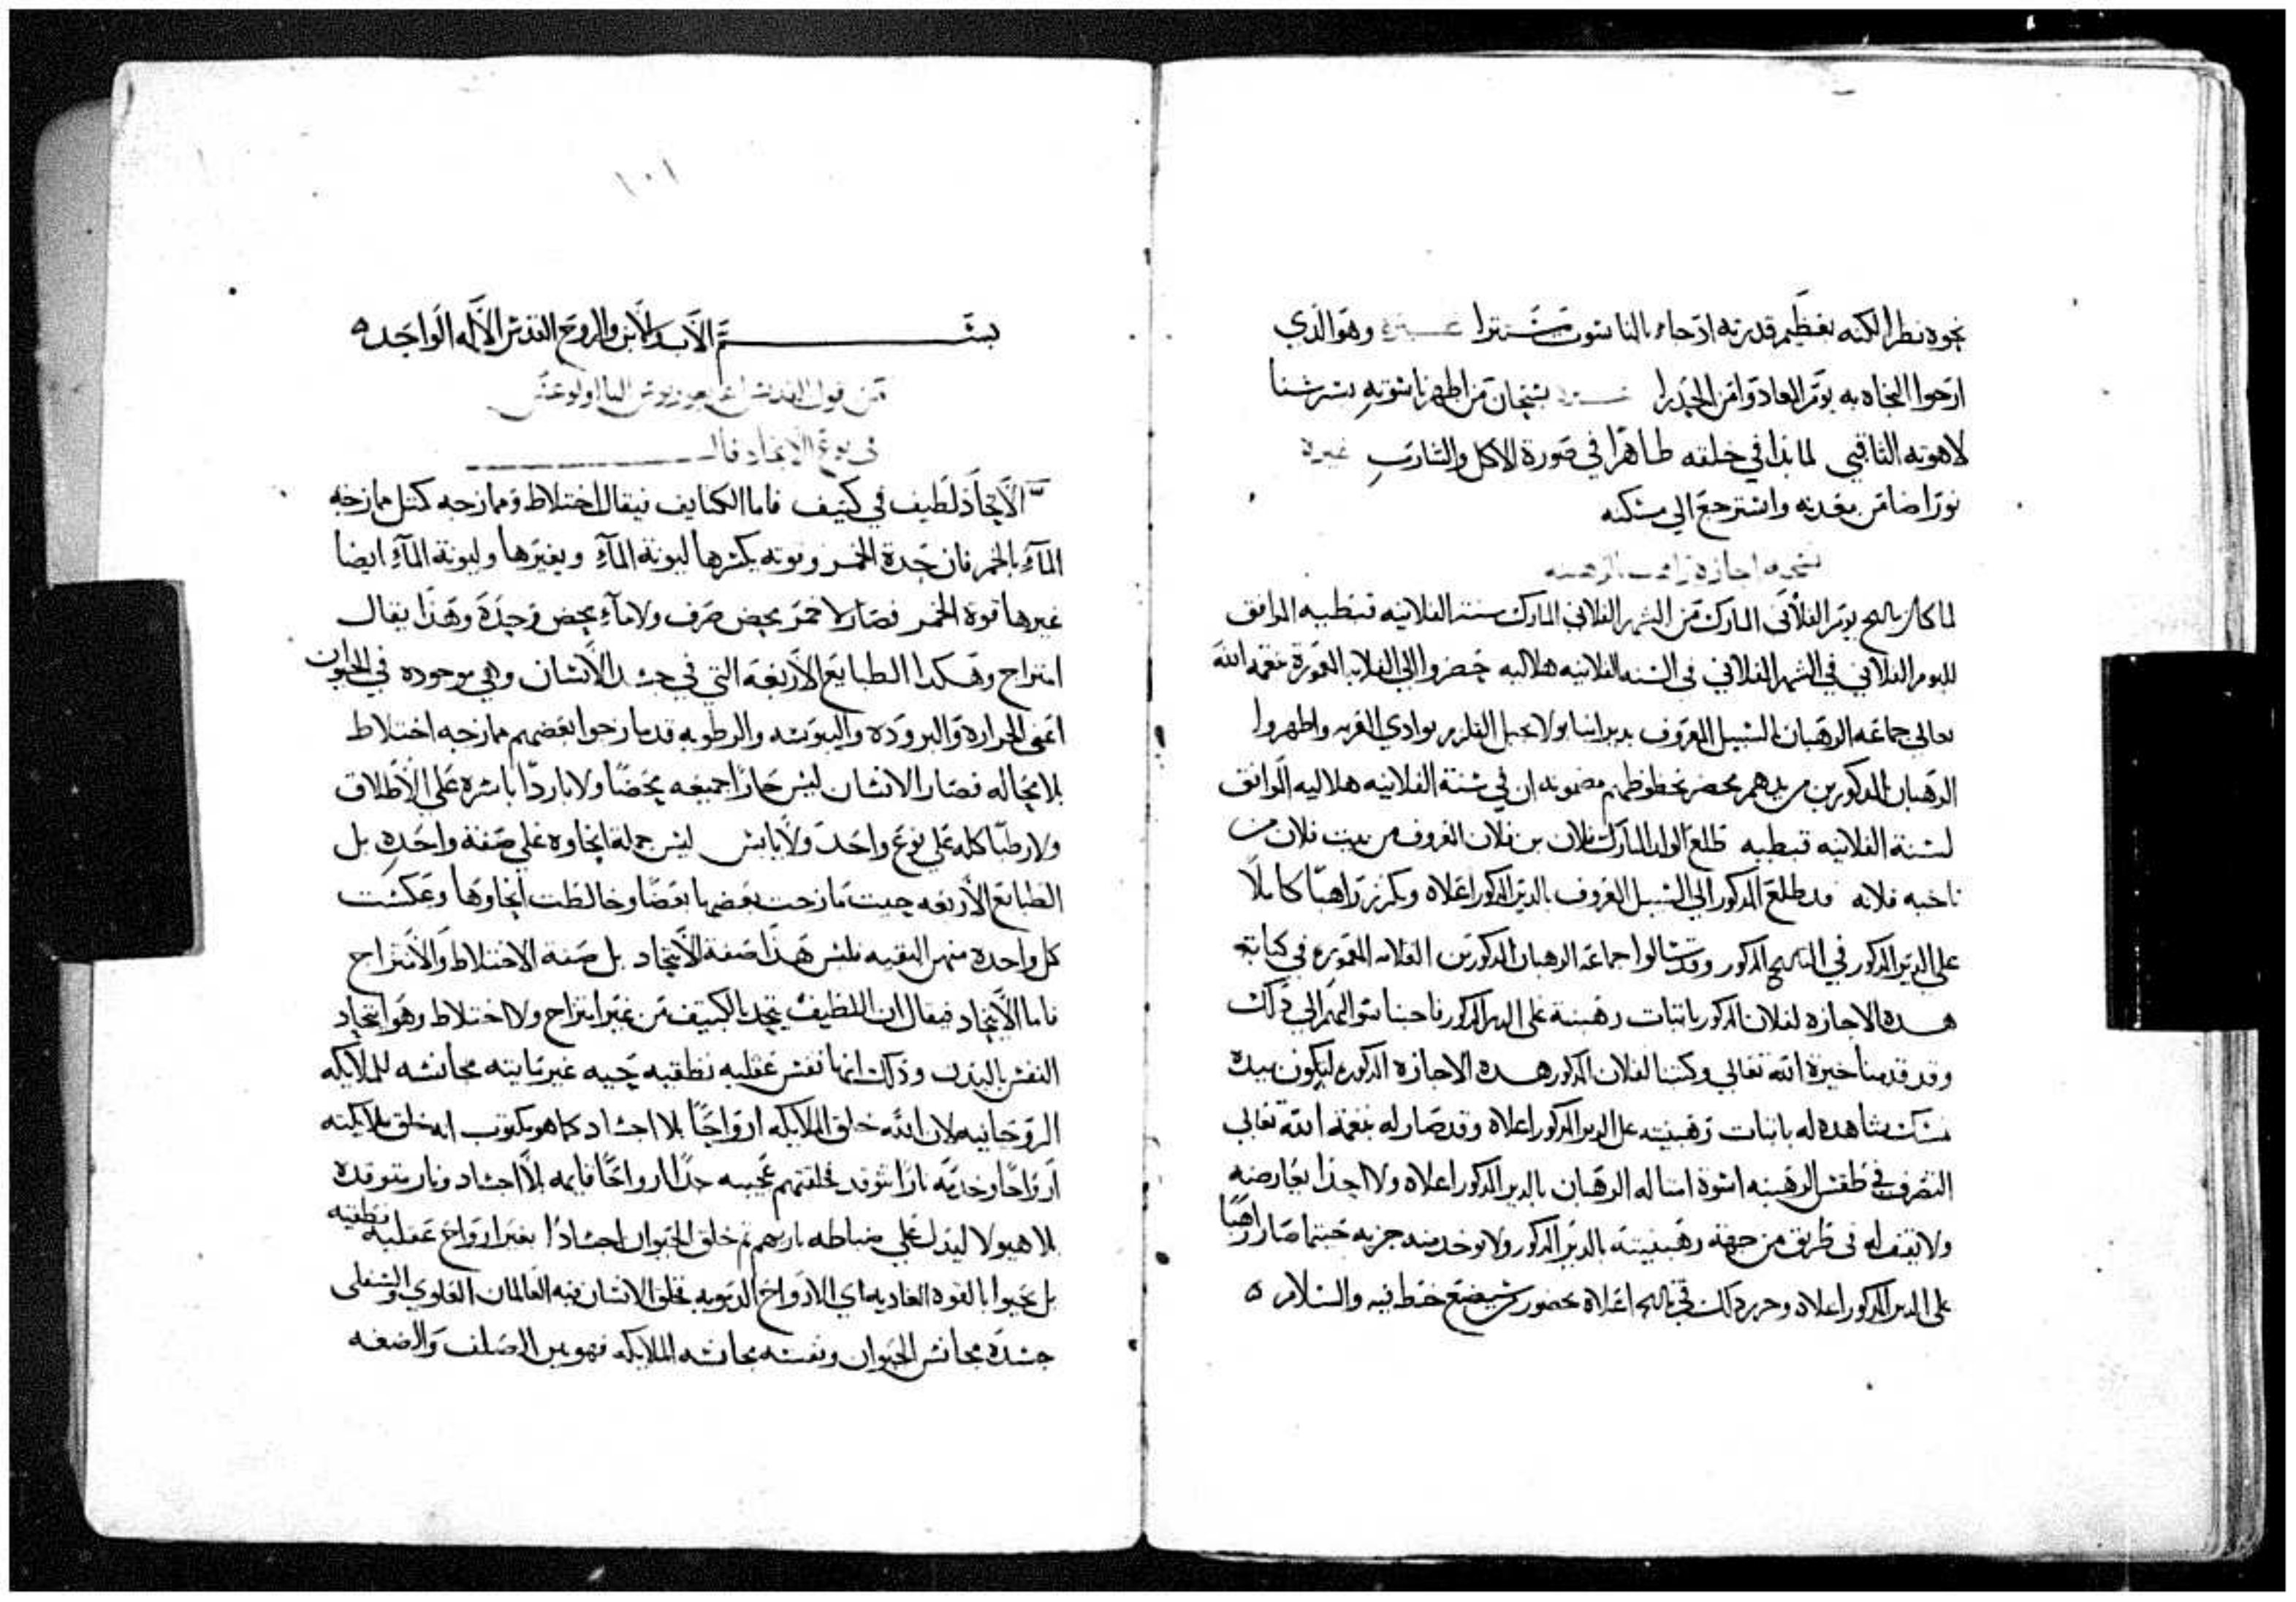 نحوه نظرا لكنه بعظيم قدرته اذ جاء بالناسوت مستترا غيره وهو الذي
ارجوا النجاه به يوم المعاد وامن الحذرا بسبحان من اظهر ناسوته بسرسنا
لاهوته الثاقبي لما بدا في خلقه ظاهرا في صورة الاكل والشارب غيره
نورا ضا من معدنه واسترجع الي مسكنه
نسخه اجازة راهب بالرهبنه
لما كان بتاريخ يوم الفلاني المبارك من الشهر الفلاني المبارك سنة الفلانيه قبطيه الموافق
لليوم الفلاني في الشهر الفلاني في السنه الفلانيه هلاليه حضروا الي القلايه المعمورة بنعمه الله
تعالي جماعه الرهبان السبيل المعروف بدير انبا بولا بجبل القلزم بوادي العربه واظهروا
الرهبان المدكورين من يدهم محضر بخطوطهم مضمونه ان في سنة الفلانيه هلاليه الموافق
لسنة الفلانيه قبطيه طلع الولد المبارك فلان بن فلان المعروف من بيت فلان من
ناحيه فلانه قد طلع المدكور الي السبيل المعروف بالدير المدكور اعلاه وتكرز راهبا كاملا
علي الدير المدكور في التاريخ المدكور وقد سالوا جماعة الرهبان المدكورين القلايه المعموره في كتابة
هده الاجازه لفلان المدكور باتبات رهبنة علي الدير المدكور فاجبنا سوالهم الي ذلك
وقد قدمنا خيرة الله تعالي وكتبنا لفلان المدكور هده الاجازه المدكوره ليكون بيده
مسك مشاهده له باتبات رهبنته علي الدير المدكور اعلاه وقد صار له بنعمة الله تعالي
التصرف في طقس الرهبنه اسوة امثاله الرهبان بالدير المدكور اعلاه ولا احدا يعارضه
ولا يقف له في طريق من جهة رهبنيته بالدير المدكور ولا يوخد منه جزيه حيتما صار راهبا
علي الدير المدكور اعلاه وحرر دلك في تاريخه اعلاه بحضور من يضع خطه فيه والسلام
١٠١
بسم الاب والابن والروح القدس الاله الواحد
من قول القديس اغريغوريوس التااولوغس
في نوع الاتحاد قال
الاتحاد لطيف في كتيف فاما الكتايف فيقال اختلاط وممازجه كمثل ممازجه
الماء بالخمر فان حدة الخمر وقوته يكسرها ليونة الماء ويغيرها وليونة الماء ايضا
غيرها قوة الخمر فصار لا خمر محض صرف ولا ماء محض وحيدة وهذا يقال
امتزاج وهكدا الطبايع الاربعه التي في جسد الانسان وهي موجوده في الحيوان
اعني الحراره والبروده واليبوسه والرطوبه قد مازجوا بعضهم ممازجه اختلاط
بلا محاله فصار الانسان ليس حارا جميعه محضا ولا باردا باسره علي الاطلاق
ولا رطبا كله علي نوع واحد ولا يابس ليس جملة انحاوه علي صفة واحده بل
الطبايع الاربعه حيت مازجت بعضها بعضا وخالطت انحاوها وعكست
كل واحدة منهن البقيه فليس هذا صفة الاتحاد بل صفة الاختلاط والامتزاج
فاما الاتحاد فيقال ان اللطيف يتحد بالكتيف من غير امتزاج ولا اختلاط وهو اتحاد
النفس بالبدن وذلك انها نفس عقليه نطقيه حيه غير مايته مجانسه للملايكه
الروحانيه لان الله خلق الملايكه ارواحا بلا اجساد كما هو مكتوب انه خلق ملايكته
ارواحا وخدمه نارا تتوقد فخلقتهم عجيبه جدا ارواحا قايمه بلا اجساد ونار متوقده
بلا هيولا ليدل علي ثم خلق الحيوان اجسادا بغير ارواح عقليه نطقيه
بل يحيوا بالقوه الغاديه اي الارواح الدمويه فخلق الانسان فيه العالمان العلوي والسفلي
جسده مجانس الحيوان ونفسه مجانسه الملايكه فهو بين الصلف والضعه